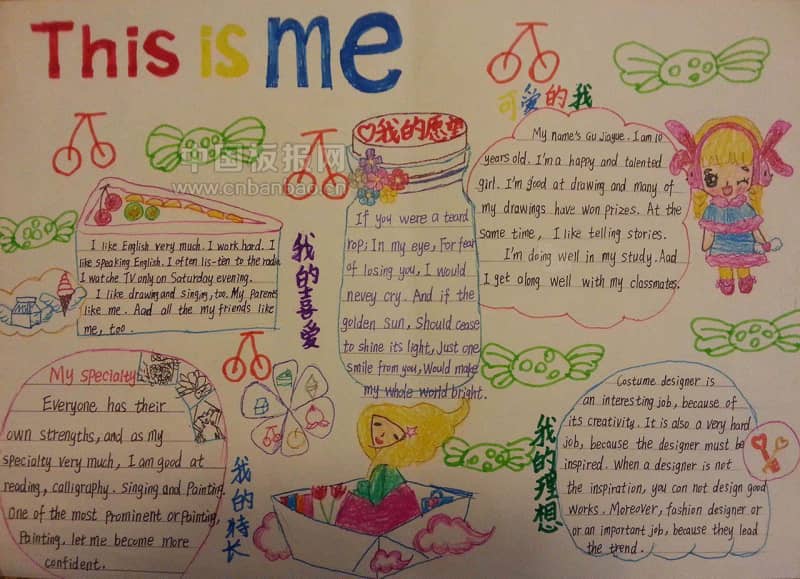 This is me
中国板报网
www.cnbanbao.cn
可爱的我
My name's Gu Jiayue. I am 10
years old. I'm a happy and talented
girl. I'm good at drawing and many of
my drawings have won prizes. At the
same time, I like telling stories.
I'm doing well in my study. Aad
I get along well with my classmates.
我的愿望
If you were a teard
rop; In my eye, For fear
of losing you, I would
nevey cry. And if the
golden sun, Should cease
to shine its light, Just one
smile from you, Would make
my whole world bright.
I like English very much. I work hard. I
like speaking English. I often lis-ten to the radio.
I watche TV only on Saturday evening.
I like drawing and singing, too. My Parents
like me. Aad all the my friends like
me, too.
我的喜爱
Milk
My specialty
Everyone has their
own strengths, and as my
specialty very much, I am good at
reading, calligraphy. Singing and Painting.
One of the most prominent or Painting,
Painting, let me become more
confident.
我的特长
我的理想
Costume designer is
an interesting job, because of
its creativity. It is also a very hard
job, because the designer must be
inspired. When a designer is not
the inspiration, you can not design good
works. Moreover, fashion designer or
or an important job, because they lead
the trend.